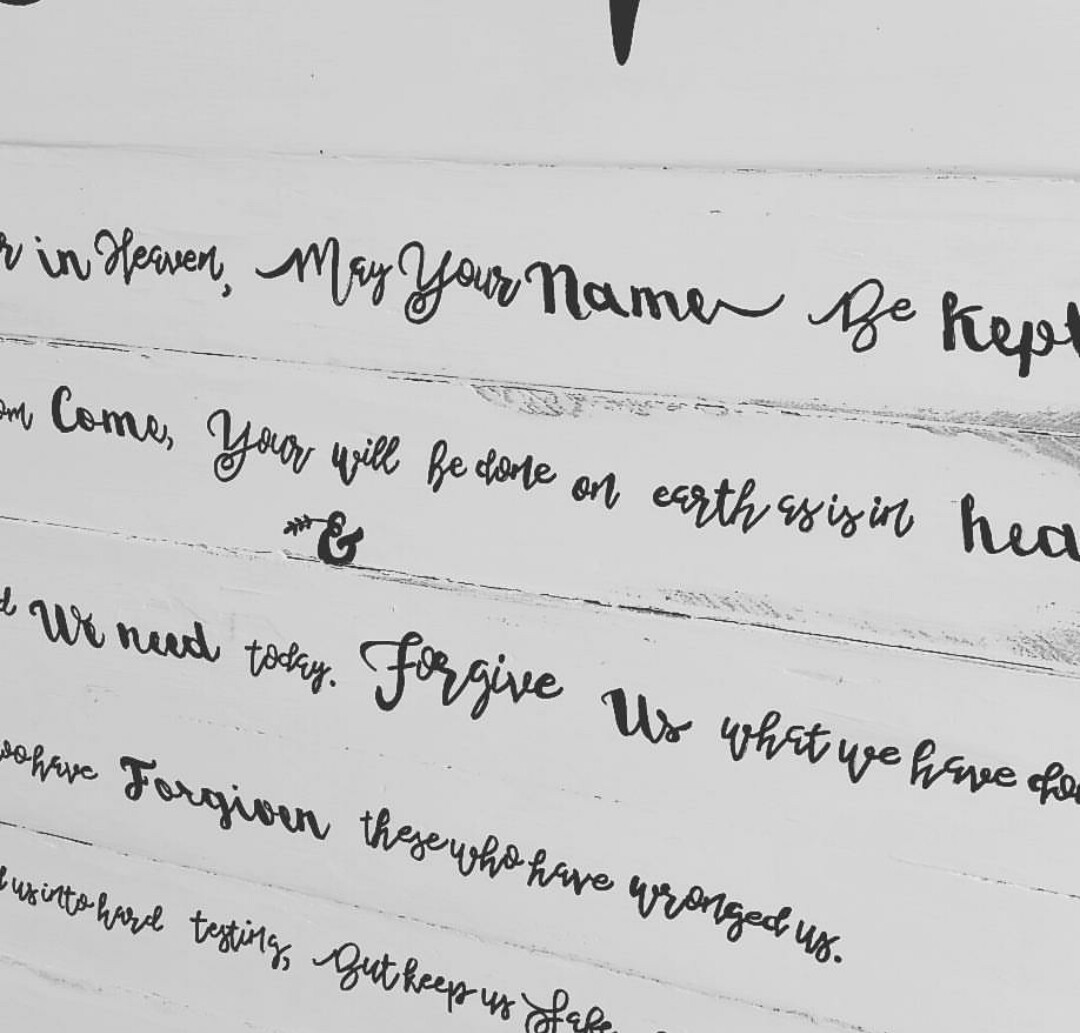 r in Heaven, May Your Name Be Kept
om Come, Your will be done on earth as is in hea
&
d We need today. Forgive Us what we have do
oo have Forgiven these who have wronged us.
d us into hard testing, But keep us Safe